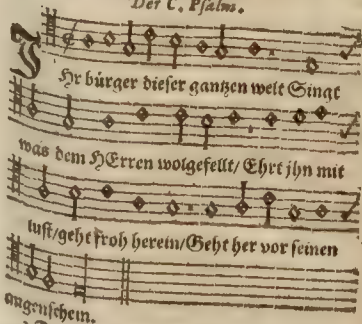 Der C. Psalm.
IHr bürger dieser gantzen welt Singt
was dem HErren wolgefellt/ Ehrt jhn mit
lust/geht froh herein/Geht her vor seinen
angenschein.